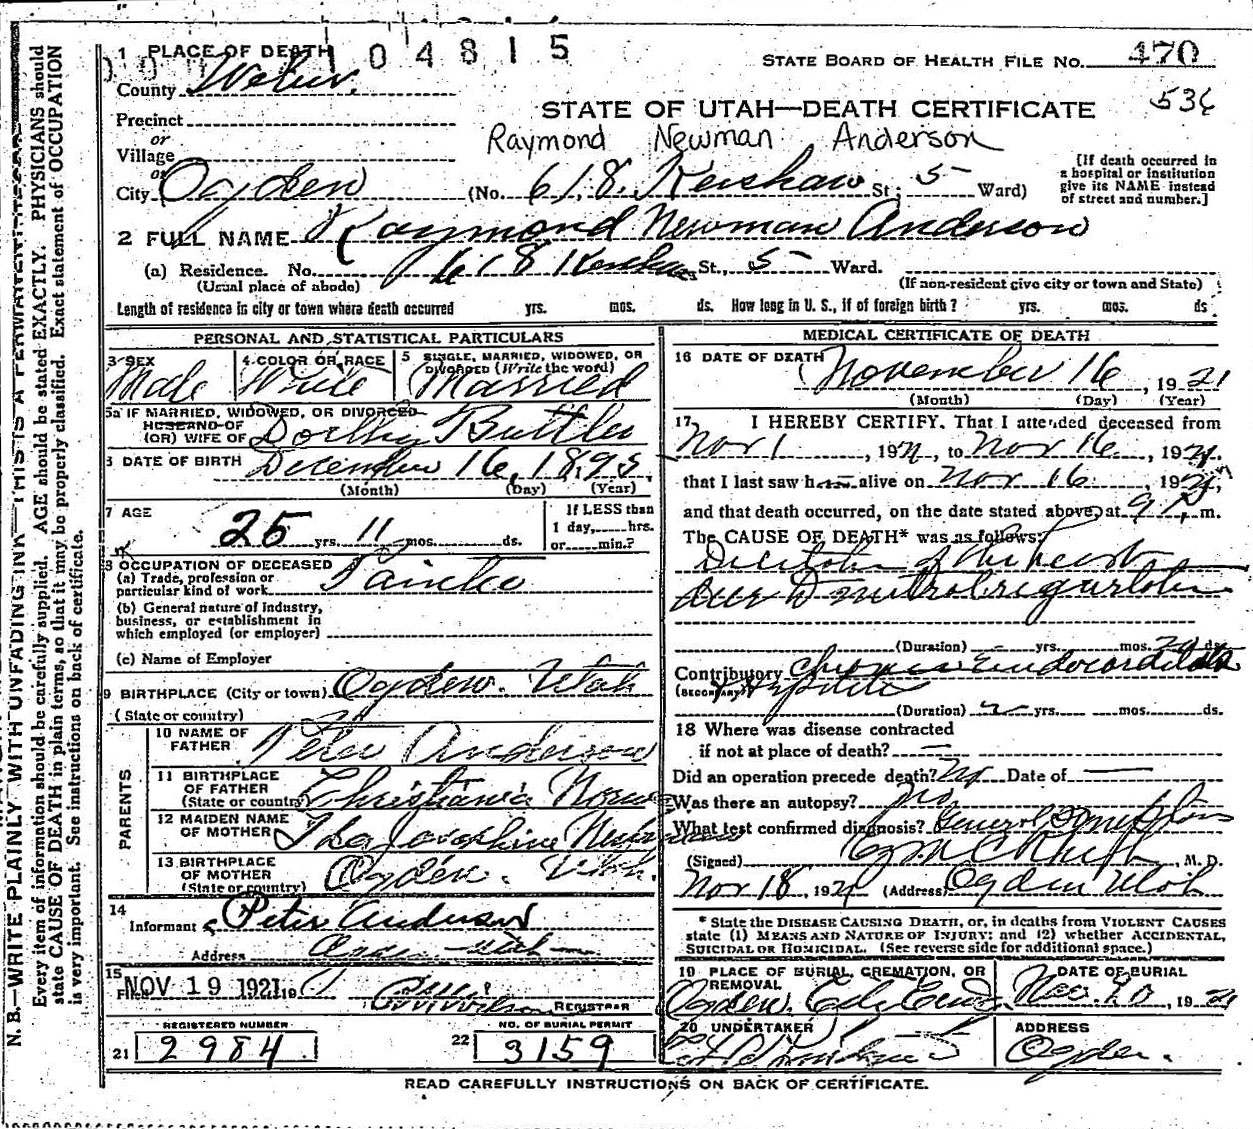 104815
1 PLACE OF DEATH
STATE BOARD OF HEALTH FILE NO. 470
County Weber.
536
STATE OF UTAH—DEATH CERTIFICATE
Precinct
Raymond Newman Anderson
or
Village
or
City Ogden (No. 618. Kershaw St; 5 Ward)
[If death occurred in
a hospital or institution
give its NAME instead
of street and number.]
2 FULL NAME Raymond Newman Anderson
(a) Residence. No. 618 Kershaw St., 5 Ward.
(Usual place of abode) (If non-resident give city or town and State)
Length of residence in city or town where death occurred yrs. mos. ds. How long in U. S., if of foreign birth? yrs. mos. ds
PERSONAL AND STATISTICAL PARTICULARS
3 SEX Male
4 COLOR OR RACE White
5 SINGLE, MARRIED, WIDOWED, OR
DIVORCED (Write the word)
Married
5a IF MARRIED, WIDOWED, OR DIVORCED
HUSBAND OF
(OR) WIFE OF Dorthy Buttler
6 DATE OF BIRTH December 16, 1895
(Month) (Day) (Year)
7 AGE
25 yrs. 11 mos. ds.
If LESS than
1 day, hrs.
or min.?
8 OCCUPATION OF DECEASED
(a) Trade, profession or
particular kind of work
(b) General nature of Industry,
business, or establishment in
which employed (or employer)
(c) Name of Employer
9 BIRTHPLACE (City or town) Ogden. Utah
(State or country)
PARENTS
10 NAME OF
FATHER Peter Anderson
11 BIRTHPLACE
OF FATHER
(State or country) Christiania
12 MAIDEN NAME
OF MOTHER Josephine
13 BIRTHPLACE
OF MOTHER
(State or country) Ogden. Utah.
14
Informant Peter Anderson
Address
15
NOV 19 1921
Wilson REGISTRAR
REGISTERED NUMBER
21 2984
NO. OF BURIAL PERMIT
22 3159
MEDICAL CERTIFICATE OF DEATH
16 DATE OF DEATH November 16, 1921
(Month) (Day) (Year)
17 I HEREBY CERTIFY. That I attended deceased from
Nov 1, 1921, to Nov 16, 1921.
that I last saw him alive on Nov 16, 1921,
and that death occurred, on the date stated above, at 9 P. m.
The CAUSE OF DEATH* was as follows:
of the heart
mitral
(Duration) yrs. mos. ds.
Contributory Chronic Endocarditis
(SECONDARY)
(Duration) yrs. mos. ds.
18 Where was disease contracted
if not at place of death? —
Did an operation precede death? No Date of —
Was there an autopsy? No
What test confirmed diagnosis? General Symptoms
(Signed) M. D.
Nov 18, 1921 (Address) Ogden Utah
* State the DISEASE CAUSING DEATH, or, in deaths from VIOLENT CAUSES
state (1) MEANS AND NATURE OF INJURY; and (2) whether ACCIDENTAL,
SUICIDAL OR HOMICIDAL. (See reverse side for additional space.)
19 PLACE OF BURIAL, CREMATION, OR
REMOVAL
Ogden.
DATE OF BURIAL
Nov. 20, 1921
20 UNDERTAKER
ADDRESS
Ogden.
READ CAREFULLY INSTRUCTIONS ON BACK OF CERTIFICATE.
N. B.—WRITE PLAINLY WITH UNFADING INK—THIS IS A PERMANENT
Every item of information should be carefully supplied. AGE should be stated EXACTLY. PHYSICIANS should
state CAUSE OF DEATH in plain terms, so that it may be properly classified. Exact statement of OCCUPATION
is very important. See instructions on back of certificate.